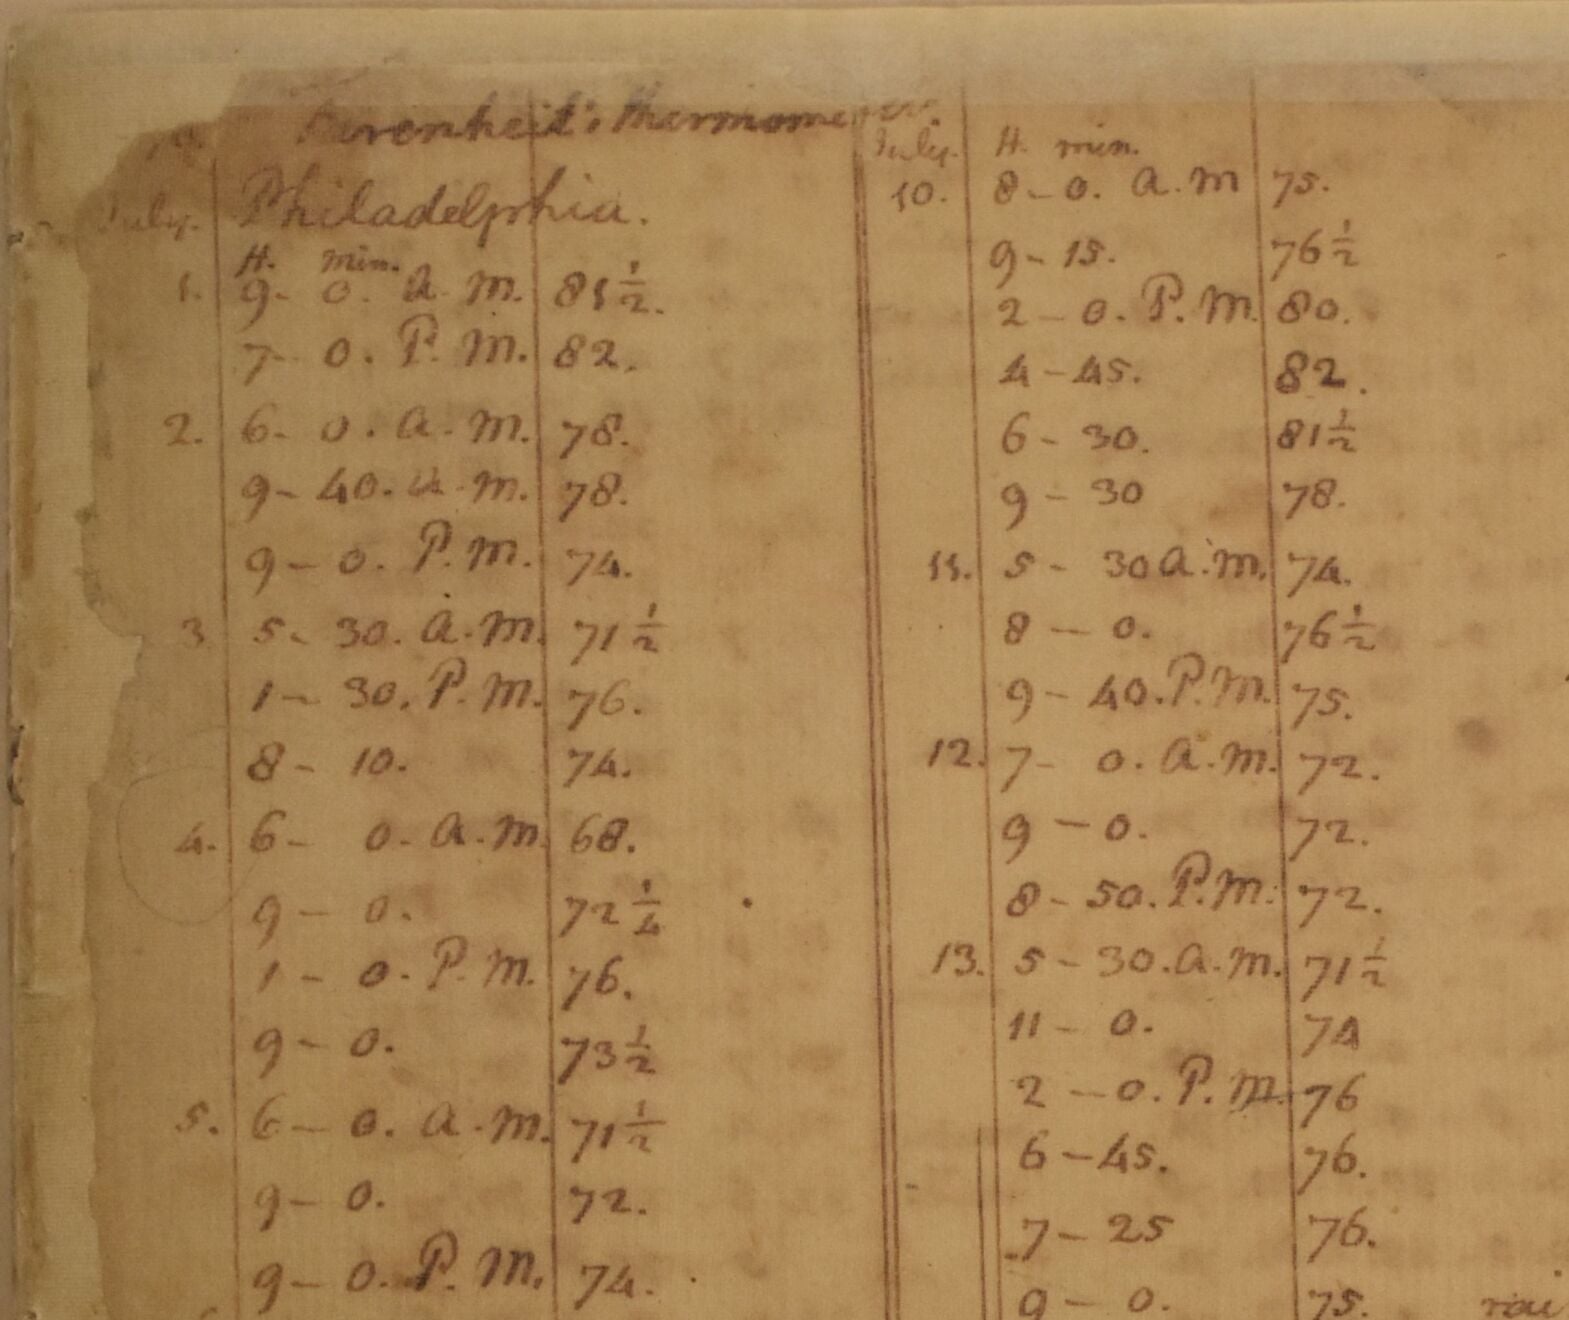 farenheit's thermometer.
July. Philadelphia.
H. min.
1. 9- 0. a. m. 81 1/2.
7- 0. P. M. 82.
2. 6- 0. a. m. 78.
9- 40. a. m. 78.
9- 0. P. m. 74.
3 5- 30. a. m. 71 1/2
1- 30. P. M. 76.
8- 10. 74.
4. 6- 0- a. m. 68.
9- 0. 72 1/4
1- 0- P. M. 76.
9- 0. 73 1/2
5. 6- 0. a. m. 71 1/2
9- 0. 72.
9- 0. P. M. 74.
July. H. min.
10. 8- 0. a. m 75.
9- 15. 76 1/2
2- 0. P. M. 80.
4- 45. 82.
6- 30. 81 1/2
9- 30 78.
11. 5- 30 a. m. 74.
8- 0. 76 1/2
9- 40. P. M. 75.
12. 7- 0. a. m. 72.
9- 0. 72.
8- 50. P. M. 72.
13. 5- 30. a. m. 71 1/2
11- 0. 74
2- 0. P. M. 76
6- 45. 76.
7- 25 76.
9- 0. 75.